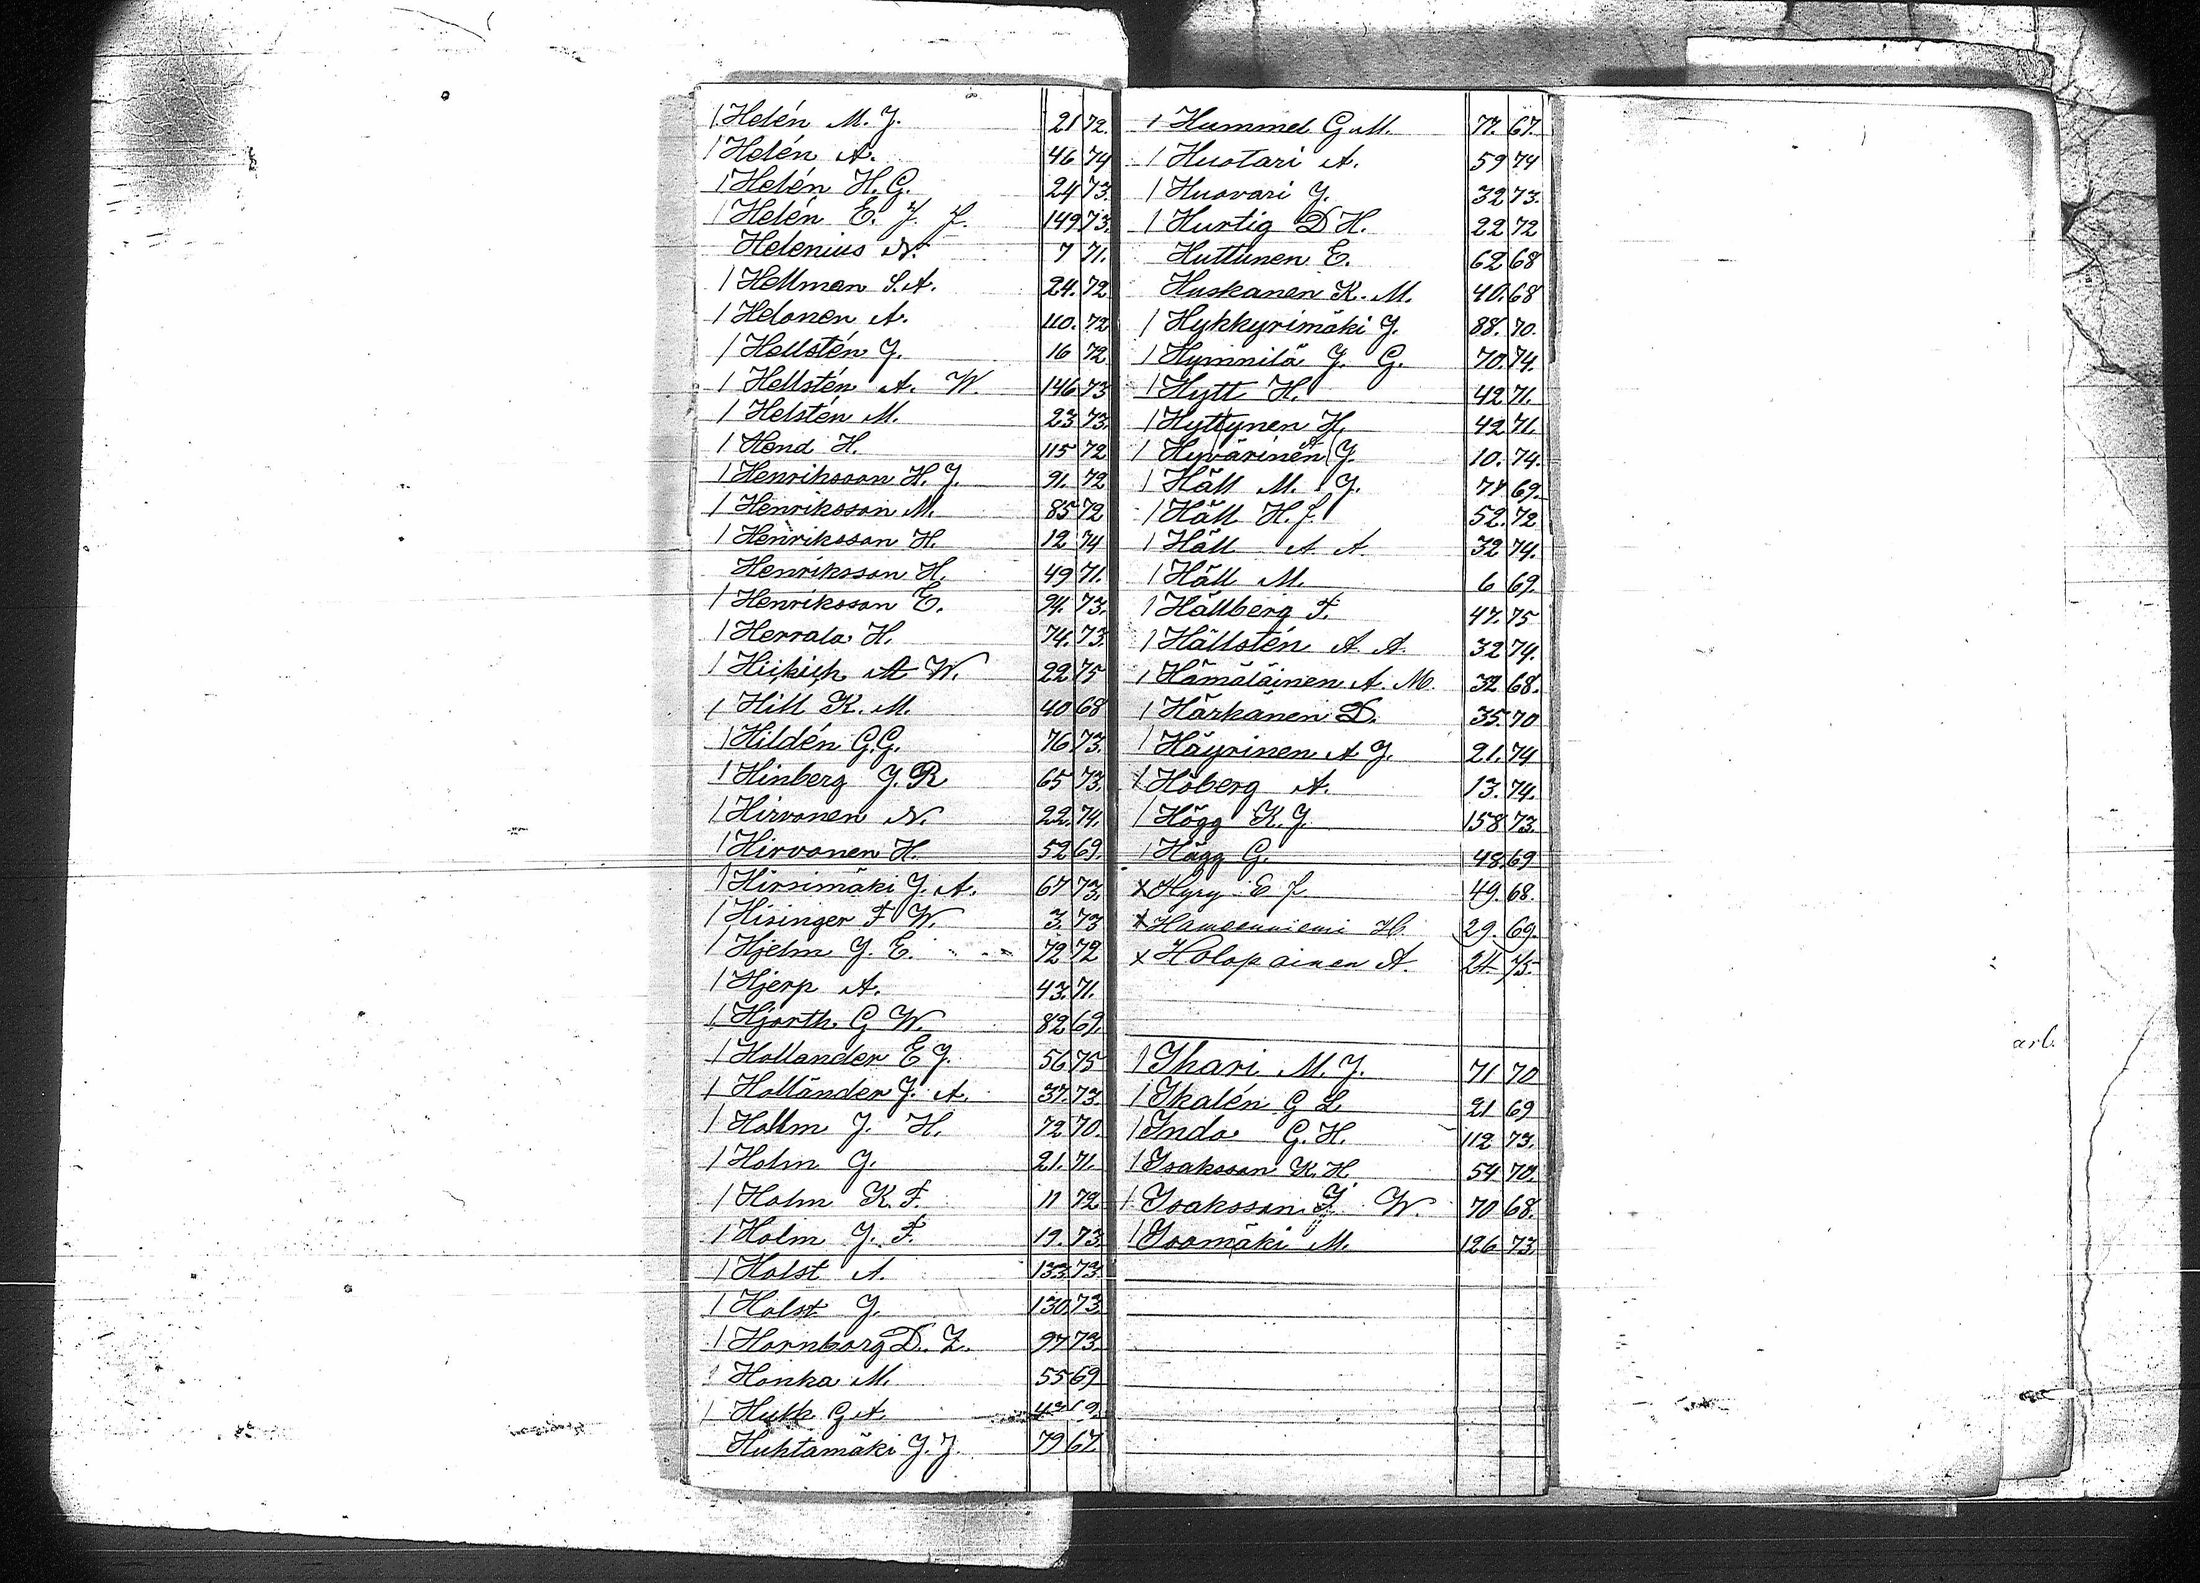 1 Helén M. J. 21 72.
1 Helén A. 46 74
1 Helén H. G. 24 73.
1 Helén E. J. F. 149 73.
Helenius N. 7 71.
1 Hellman S. A. 24. 72
1 Helonen A. 110. 72
1 Hellstén J. 16 72
1 Hellstén A. W. 146 73
1 Helstén M. 23 73.
1 Hend H. 115 72
1 Henriksson H. J. 91. 72
1 Henriksson M. 85 72
1 Henriksson H. 12 74
Henriksson H. 49 71.
1 Henriksson E. 94. 73.
1 Herrala H. 74. 73.
1 A W. 22 75
1 Hill K. M. 40 68
1 Hildén G. G. 76 73.
1 Hinberg J. R 65 73.
1 Hirvonen N. 22. 74.
1 Hirvonen H. 52 69.
1 Hirsimäki J. A. 67 73.
1 Hisinger F W. 3. 73
1 Hjelm J. E. 72 72
1 Hjerp A. 43. 71.
1 Hjorth G W. 82 69.
1 Hollander E J. 56 75
1 Holländer J. A. 37. 73.
1 Hollm J. H. 72 70.
1 Holm J. 21. 71.
1 Holm K. F. 11 72
1 Holm J. F. 19. 73.
1 Holst A. 133. 73.
1 Holst J. 130. 73
1 Hornborg D. Z. 97 73.
1 Honka M. 55 69
1 G A.
Huhtamäki J. J. 79 67
1 Hummel G. M. 77. 67.
1 Huotari A. 59 74
1 Huovari J. 32 73.
1 Hurtig D H. 22 72
Huttunen E. 62 68
Huskanen K. M. 40. 68
1 Hykkyrimäki J. 88. 70.
1 Hymnilä J. G. 70. 74.
1 Hytt H. 42 71.
1 Hyttynen H. 42 71.
1 Hyvärinen A J. 10. 74.
1 Häll M. J. 77 69.
1 Häll H. F. 52. 72
1 Häll A A. 32 74.
1 Häll M. 6 69.
1 Hällberg F. 47. 75
1 Hällstén A. A. 32 74.
1 Hämäläinen A. M. 32 68.
1 Härkänen D. 35. 70
1 Häyrinen A J. 21. 74
1 Höberg A. 13. 74.
1 Högg K. J. 158 73.
1 Hägg G. 48. 69
x Hyry E F. 49. 68.
x Hameenniemi H. 29. 69.
x Holopainen A. 24 75.
1 Ihari M. J. 71 70
1 Ikalén G L. 21 69
1 Inda G. H. 112 73.
1 Isaksson K. H. 54 70.
1 Isaksson J W. 70 68.
1 Isomäki M. 126 73.
arb.